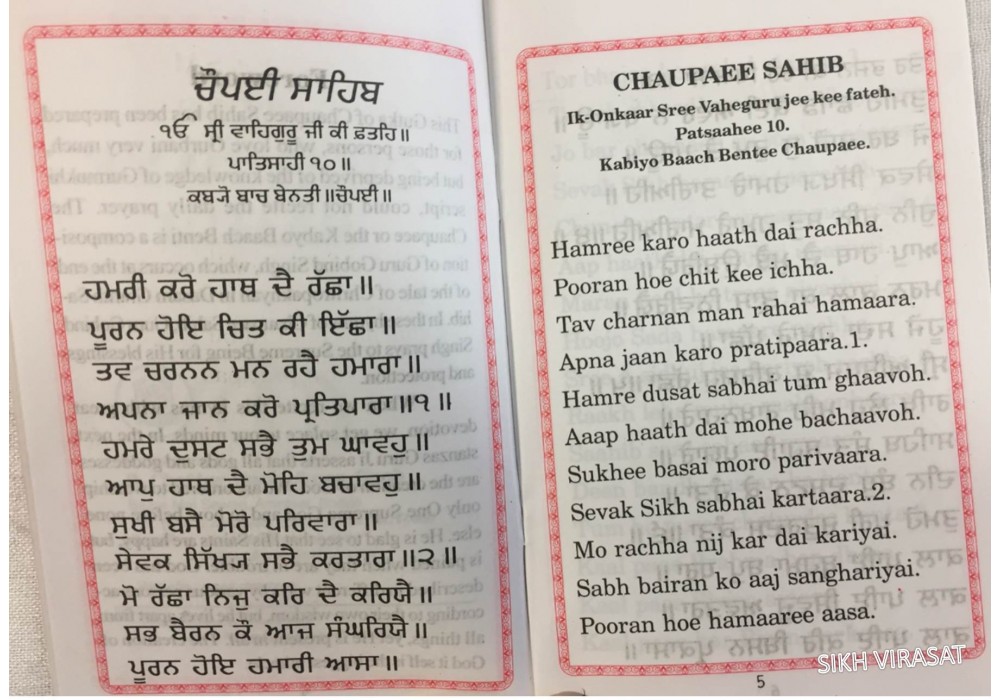 ਚੌਪਈ ਸਾਹਿਬ
ੴ ਸ੍ਰੀ ਵਾਹਿਗੁਰੂ ਜੀ ਕੀ ਫ਼ਤਹਿ॥
ਪਾਤਿਸਾਹੀ ੧੦॥
ਕਬਯੋ ਬਾਚ ਬੇਨਤੀ॥ਚੌਪਈ॥
ਹਮਰੀ ਕਰੋ ਹਾਥ ਦੈ ਰੱਛਾ॥
ਪੂਰਨ ਹੋਇ ਚਿਤ ਕੀ ਇੱਛਾ॥
ਤਵ ਚਰਨਨ ਮਨ ਰਹੈ ਹਮਾਰਾ॥
ਅਪਨਾ ਜਾਨ ਕਰੋ ਪ੍ਰਤਿਪਾਰਾ॥੧॥
ਹਮਰੇ ਦੁਸਟ ਸਭੈ ਤੁਮ ਘਾਵਹੁ॥
ਆਪੁ ਹਾਥ ਦੈ ਮੋਹਿ ਬਚਾਵਹੁ॥
ਸੁਖੀ ਬਸੈ ਮੋਰੋ ਪਰਿਵਾਰਾ॥
ਸੇਵਕ ਸਿੱਖਯ ਸਭੈ ਕਰਤਾਰਾ॥੨॥
ਮੋ ਰੱਛਾ ਨਿਜੁ ਕਰਿ ਦੈ ਕਰਿਯੈ॥
ਸਭ ਬੈਰਨ ਕੌ ਆਜ ਸੰਘਰਿਯੈ॥
ਪੂਰਨ ਹੋਇ ਹਮਾਰੀ ਆਸਾ॥
CHAUPAEE SAHIB
Ik-Onkaar Sree Vaheguru jee kee fateh.
Patsaahee 10.
Kabiyo Baach Bentee Chaupaee.
Hamree karo haath dai rachha.
Pooran hoe chit kee ichha.
Tav charnan man rahai hamaara.
Apna jaan karo pratipaara.1.
Hamre dusat sabhai tum ghaavoh.
Aaap haath dai mohe bachaavoh.
Sukhee basai moro parivaara.
Sevak Sikh sabhai kartaara.2.
Mo rachha nij kar dai kariyai.
Sabh bairan ko aaj sanghariyai.
Pooran hoe hamaaree aasa.
5
SIKH VIRASAT